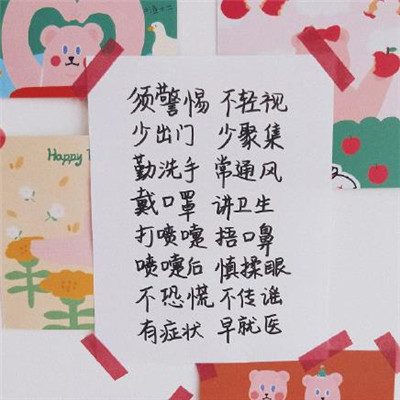 Happy
须警惕 不轻视
少出门 少聚集
勤洗手 常通风
戴口罩 讲卫生
打喷嚏 捂口鼻
喷嚏后 慎揉眼
不恐慌 不传谣
有症状 早就医